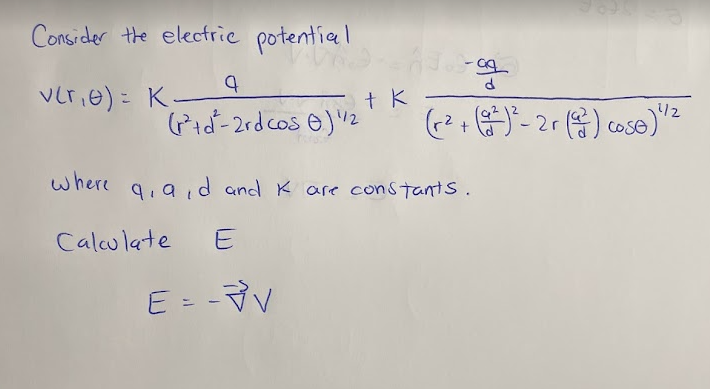 Consider the electric potential
V(r,θ) = K q/(r²+d²-2rdcos θ)^1/2 + K (-aq/d)/(r² + (a²/d)² - 2r (a²/d) cosθ)^1/2
where q, a, d and K are constants.
Calculate E
E = -∇⃗V